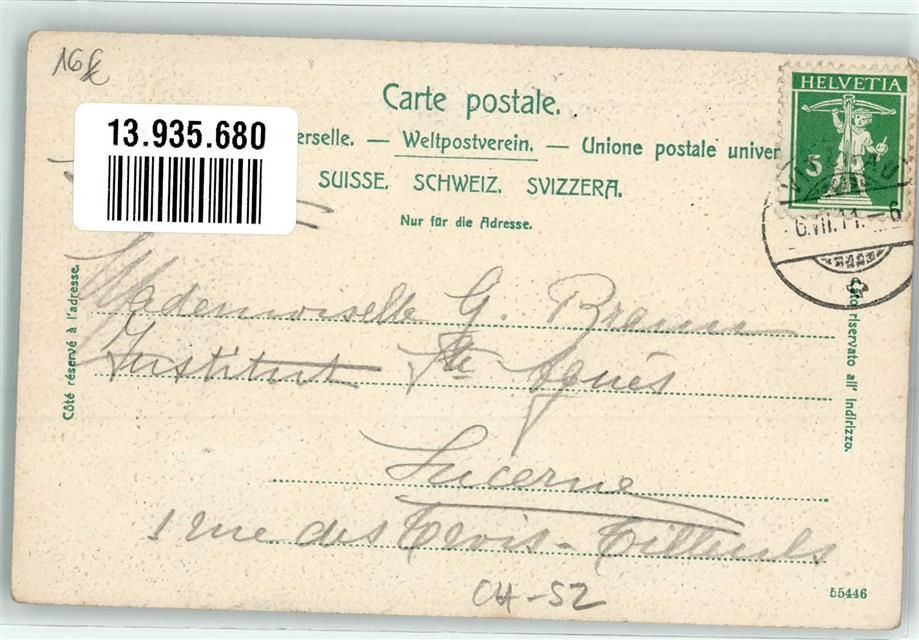 16
Carte postale.
13.935.680
erselle. — Weltpostverein. — Unione postale univer
SUISSE. SCHWEIZ. SVIZZERA.
Nur für die Adresse.
HELVETIA
5
6.VII.11.–6
Côté réservé à l'adresse.
Lato riservato all' indirizzo.
Mademoiselle G. Braun
Institut Ste Agnès
Lucerne
1 rue des Trois-Tilleuls
CH-52
55446